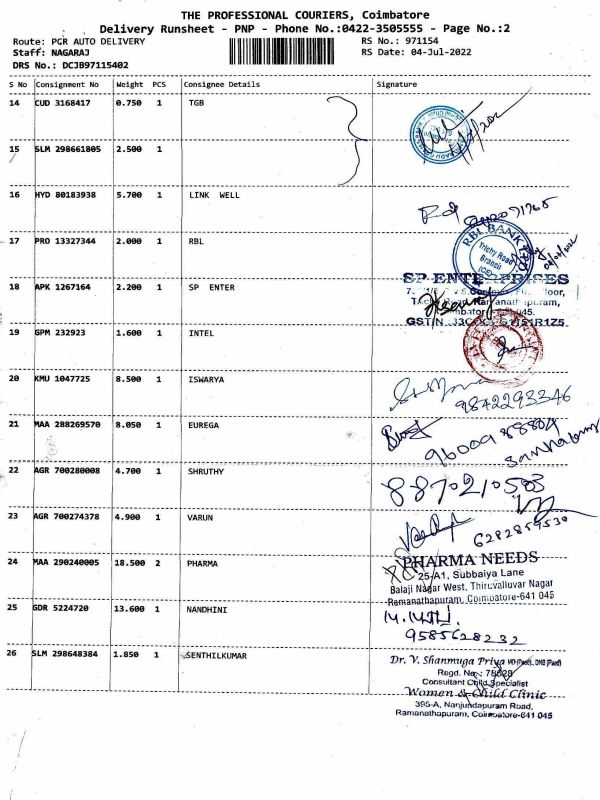 THE PROFESSIONAL COURIERS, Coimbatore
Delivery Runsheet - PNP - Phone No.:0422-3505555 - Page No.:2
Route: PGR AUTO DELIVERY RS No.: 971154
Staff: NAGARAJ RS Date: 04-Jul-2022
DRS No.: DCJB97115402
S No Consignment No Weight PCS Consignee Details Signature
14 CUD 3168417 0.750 1 TGB
15 SLM 298661805 2.500 1
16 HYD 80183938 5.700 1 LINK WELL
17 PRO 13327344 2.000 1 RBL
RBL BANK LTD.
Trichy Road
Branch
(CBE)
18 APK 1267164 2.200 1 SP ENTER
SP ENTERPRISES
19 GPM 232923 1.600 1 INTEL
20 KMU 1047725 8.500 1 ISWARYA
9842293346
21 MAA 288269570 8.050 1 EUREGA
22 AGR 700280008 4.700 1 SHRUTHY
8870210583
23 AGR 700274378 4.900 1 VARUN
24 MAA 290240005 18.500 2 PHARMA
PHARMA NEEDS
25-A1, Subbaiya Lane
Balaji Nagar West, Thiruvalluvar Nagar
Ramanathapuram, Coimbatore-641 045
25 GDR 5224720 13.600 1 NANDHINI
9585628232
26 SLM 298648384 1.850 1 SENTHILKUMAR
Dr. V. Shanmuga Priya MD(Paed)., DNB (Paed)
Regd. No.: 78628
Consultant Child Specialist
Women & Child Clinic
395-A, Nanjundapuram Road,
Ramanathapuram, Coimbatore-641 045